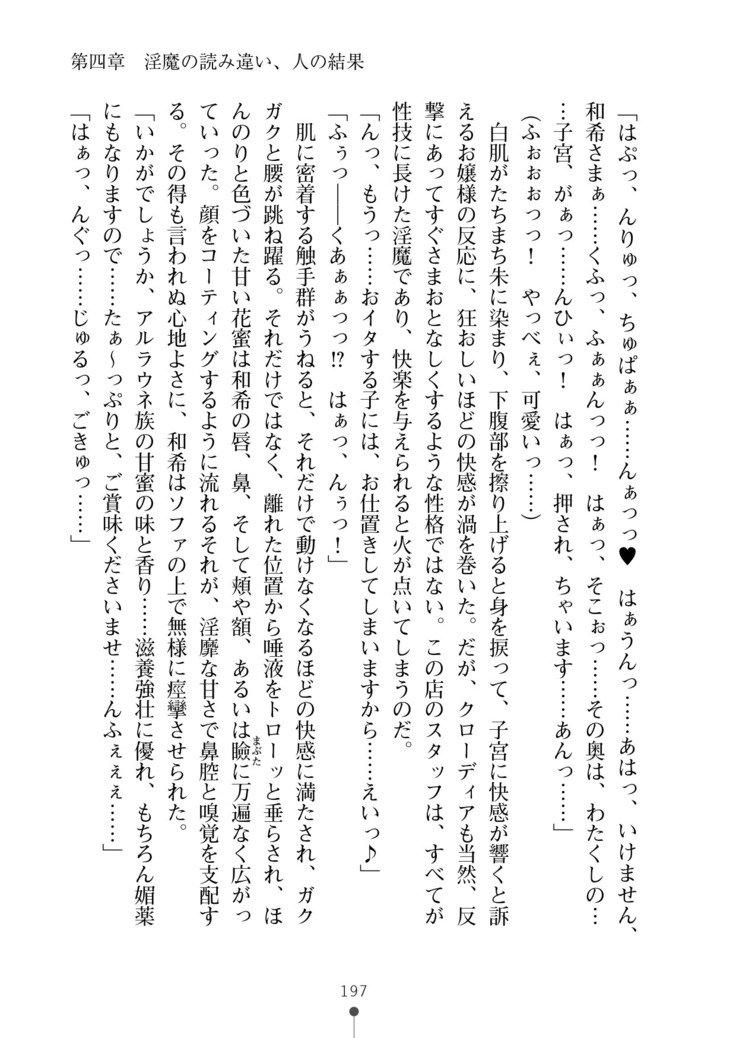 第四章　淫魔の読み違い、人の結果
「はぷっ、んりゅっ、ちゅぱぁぁ……んぁっっ♥　はぁうんっ……あはっ、いけません、
和希さまぁ……くふっ、ふぁぁんっっ！　はぁっ、そこぉっ……その奥は、わたくしの…
…子宮、がぁっ……んひぃっ！　はぁっ、押され、ちゃいます……あんっ……」
（ふぉぉぉっっ！　やっべぇ、可愛いっ……）
　白肌がたちまち朱に染まり、下腹部を擦り上げると身を捩って、子宮に快感が響くと訴
えるお嬢様の反応に、狂おしいほどの快感が渦を巻いた。だが、クローディアも当然、反
撃にあってすぐさまおとなしくするような性格ではない。この店のスタッフは、すべてが
性技に長けた淫魔であり、快楽を与えられると火が点いてしまうのだ。
「んっ、もうっ……おイタする子には、お仕置きしてしまいますから……えいっ♪」
「ふぅっ――くあぁぁっっ!?　はぁっ、んぅっ！」
　肌に密着する触手群がうねると、それだけで動けなくなるほどの快感に満たされ、ガク
ガクと腰が跳ね躍る。それだけではなく、離れた位置から唾液をトローッと垂らされ、ほ
んのりと色づいた甘い花蜜は和希の唇、鼻、そして頬や額、あるいは瞼に万遍なく広がっ
まぶた
ていった。顔をコーティングするように流れるそれが、淫靡な甘さで鼻腔と嗅覚を支配す
る。その得も言われぬ心地よさに、和希はソファの上で無様に痙攣させられた。
「いかがでしょうか、アルラウネ族の甘蜜の味と香り……滋養強壮に優れ、もちろん媚薬
にもなりますので……たぁ～っぷりと、ご賞味くださいませ……んふぇぇぇ……」
「はぁっ、んぐっ……じゅるっ、ごきゅっ……」
197